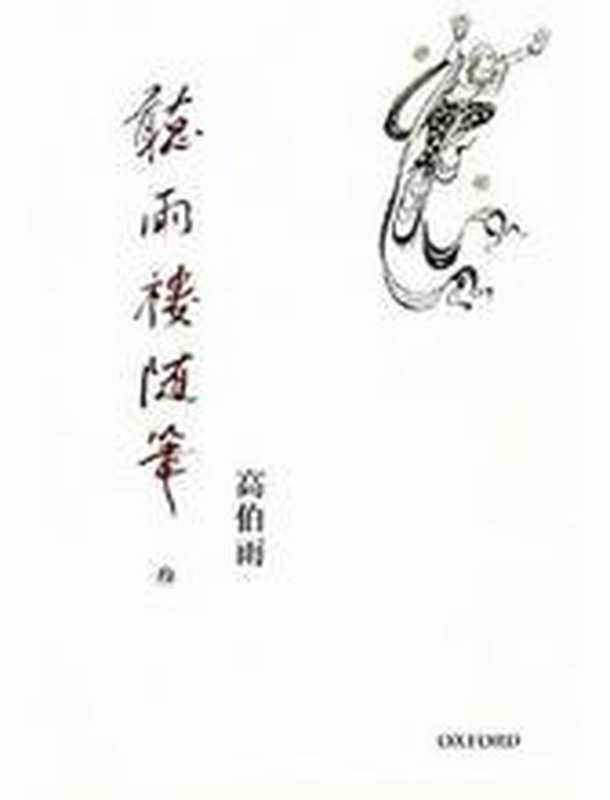 聽雨樓随筆
叁
高伯雨
OXFORD